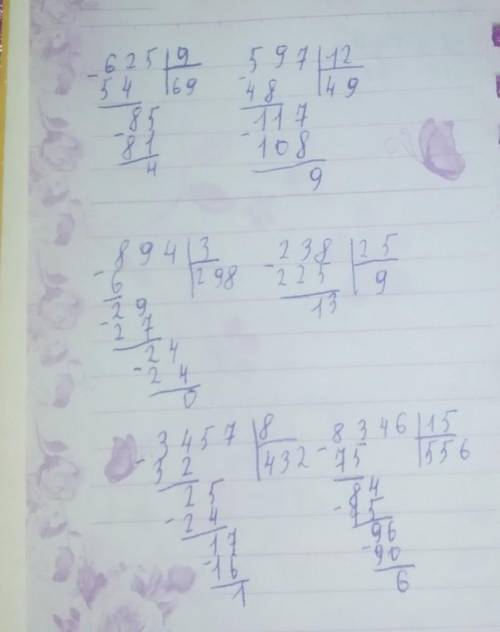 -625|9
54 69
-85
81
4
-597|12
48 49
117
-108
9
-894|3
6 298
29
-27
24
-24
0
-238|25
225 9
13
-3457|8
32 432
25
-24
17
-16
1
-8346|15
75 556
84
-75
96
-90
6